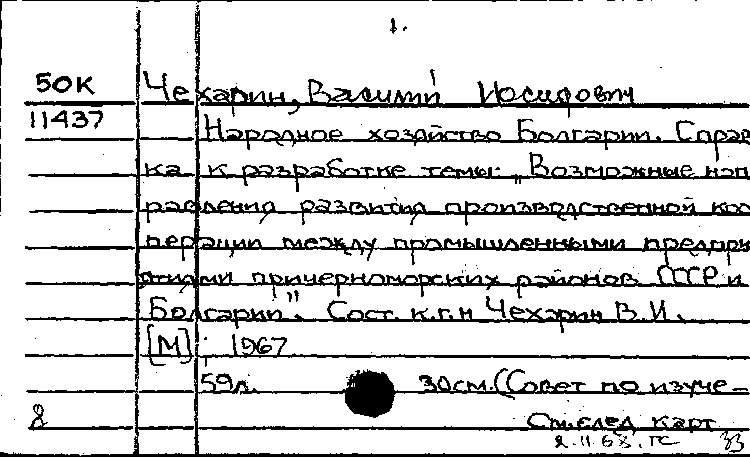 1.
50К Чехарин, Василий Иосифович
11437 Народное хозяйство Болгарии. Справ
ка к разработке темы: „Возможные нап
равления развития производственной коо
перации между промышленными предпри
ятиями причерноморских районов СССР и
Болгарии". Сост. к.г.н Чехарин В.И.
[М], 1967
59л. 30см. (Совет по изуче-
8 См. след. карт
2.II.68. ГС 33